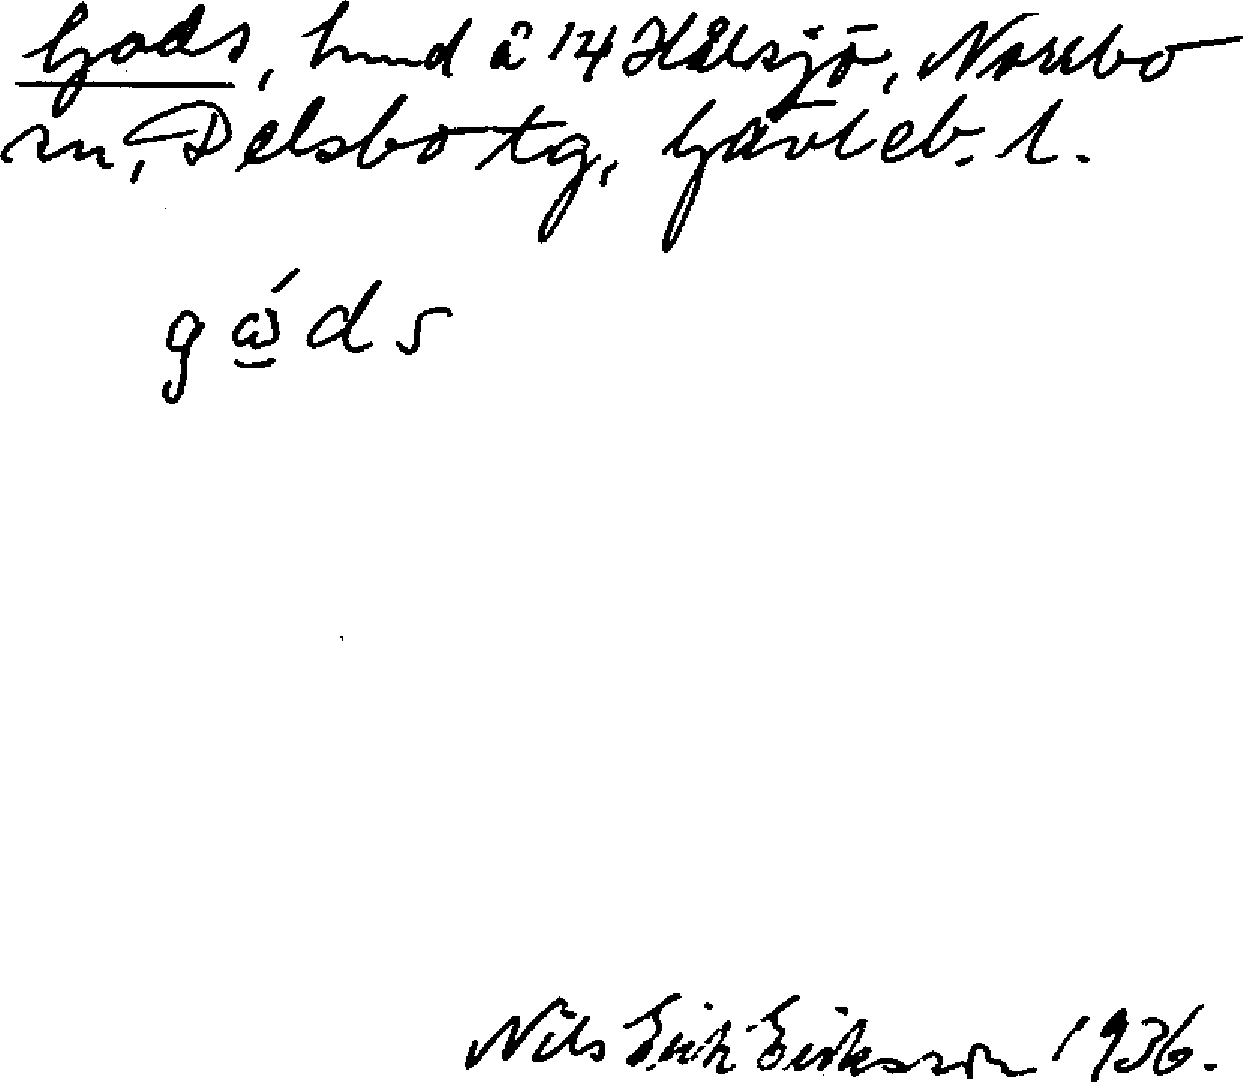 Gods, hmd å 14 Hålsjö, Norrbo
sn, Delsbo tg, Gävleb. l.
Nils Erik Eriksson 1936.